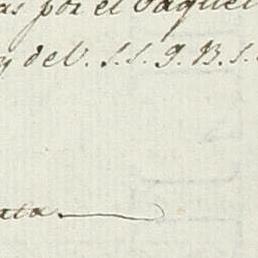 as por el Paquet
y del V. S. S. J. B. S. S.
ata